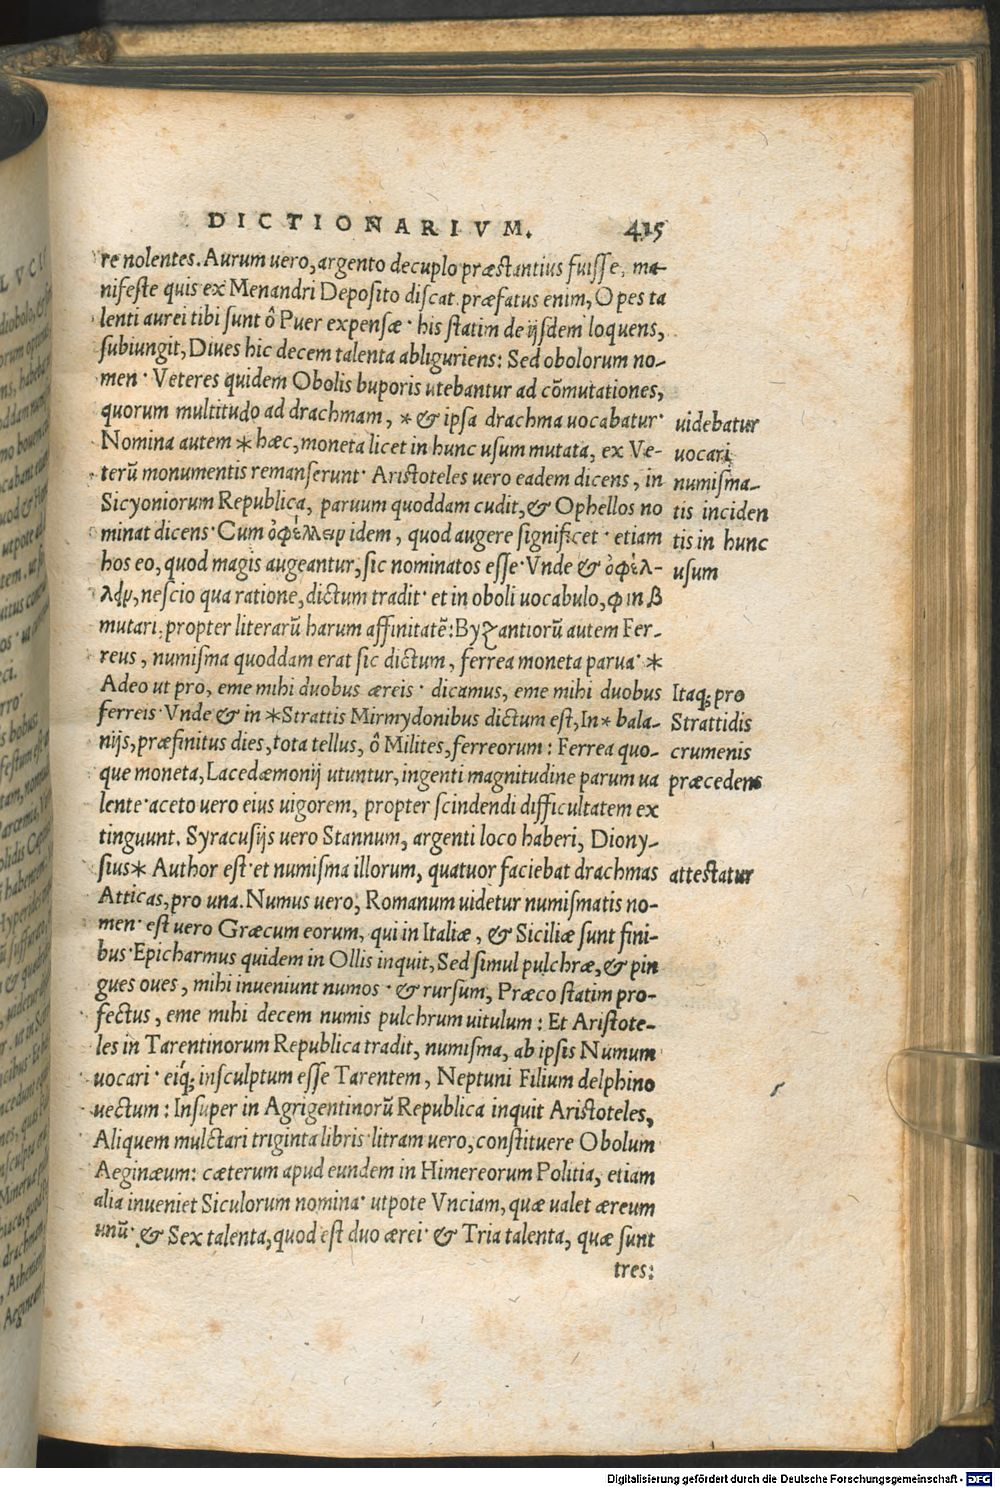 DICTIONARIVM. 415
re nolentes. Aurum uero, argento decuplo præstantius fuisse, ma-
nifeste quis ex Menandri Deposito discat. præfatus enim, Opes ta
lenti aurei tibi sunt ô Puer expensæ· his statim de ijsdem loquens,
subiungit, Diues hic decem talenta abliguriens: Sed obolorum no-
men· Veteres quidem Obolis buporis utebantur ad cõmutationes,
quorum multitudo ad drachmam, * & ipsa drachma uocabatur·
uidebatur
Nomina autem * hæc, moneta licet in hunc usum mutata, ex Ve-
uocari
terũ monumentis remanserunt· Aristoteles uero eadem dicens, in
numisma-
Sicyoniorum Republica, paruum quoddam cudit, & Ophellos no
tis inciden
minat dicens· Cum ὀφέλλειν idem, quod augere significet· etiam
tis in hunc
hos eo, quod magis augeantur, sic nominatos esse· Vnde & ὀφέλ-
usum
λειν, nescio qua ratione, dictum tradit· et in oboli uocabulo, φ in β
mutari, propter literarũ harum affinitatẽ: Byzantiorũ autem Fer-
reus, numisma quoddam erat sic dictum, ferrea moneta parua· *
Adeo ut pro, eme mihi duobus æreis· dicamus, eme mihi duobus
Itaq; pro
ferreis· Vnde & in *Strattis Mirmydonibus dictum est, In* bala-
Strattidis
nijs, præfinitus dies, tota tellus, ô Milites, ferreorum: Ferrea quo-
crumenis
que moneta, Lacedæmonij utuntur, ingenti magnitudine parum ua
præcedens
lente· aceto uero eius uigorem, propter scindendi difficultatem ex
tinguunt. Syracusijs uero Stannum, argenti loco haberi, Diony-
sius* Author est· et numisma illorum, quatuor faciebat drachmas
attestatur
Atticas, pro una. Numus uero, Romanum uidetur numismatis no-
men· est uero Græcum eorum, qui in Italiæ, & Siciliæ sunt fini-
bus· Epicharmus quidem in Ollis inquit, Sed simul pulchræ, & pin
gues oues, mihi inueniunt numos· & rursum, Præco statim pro-
fectus, eme mihi decem numis pulchrum uitulum: Et Aristote-
les in Tarentinorum Republica tradit, numisma, ab ipsis Numum
uocari· eiq́; insculptum esse Tarentem, Neptuni Filium delphino
uectum: Insuper in Agrigentinorũ Republica inquit Aristoteles,
Aliquem mulctari triginta libris· litram uero, constituere Obolum
Aeginæum: cæterum apud eundem in Himereorum Politia, etiam
alia inueniet Siculorum nomina· utpote Vnciam, quæ ualet æreum
unũ· & Sex talenta, quod est duo ærei· & Tria talenta, quæ sunt
tres:
Digitalisierung gefördert durch die Deutsche Forschungsgemeinschaft - DFG